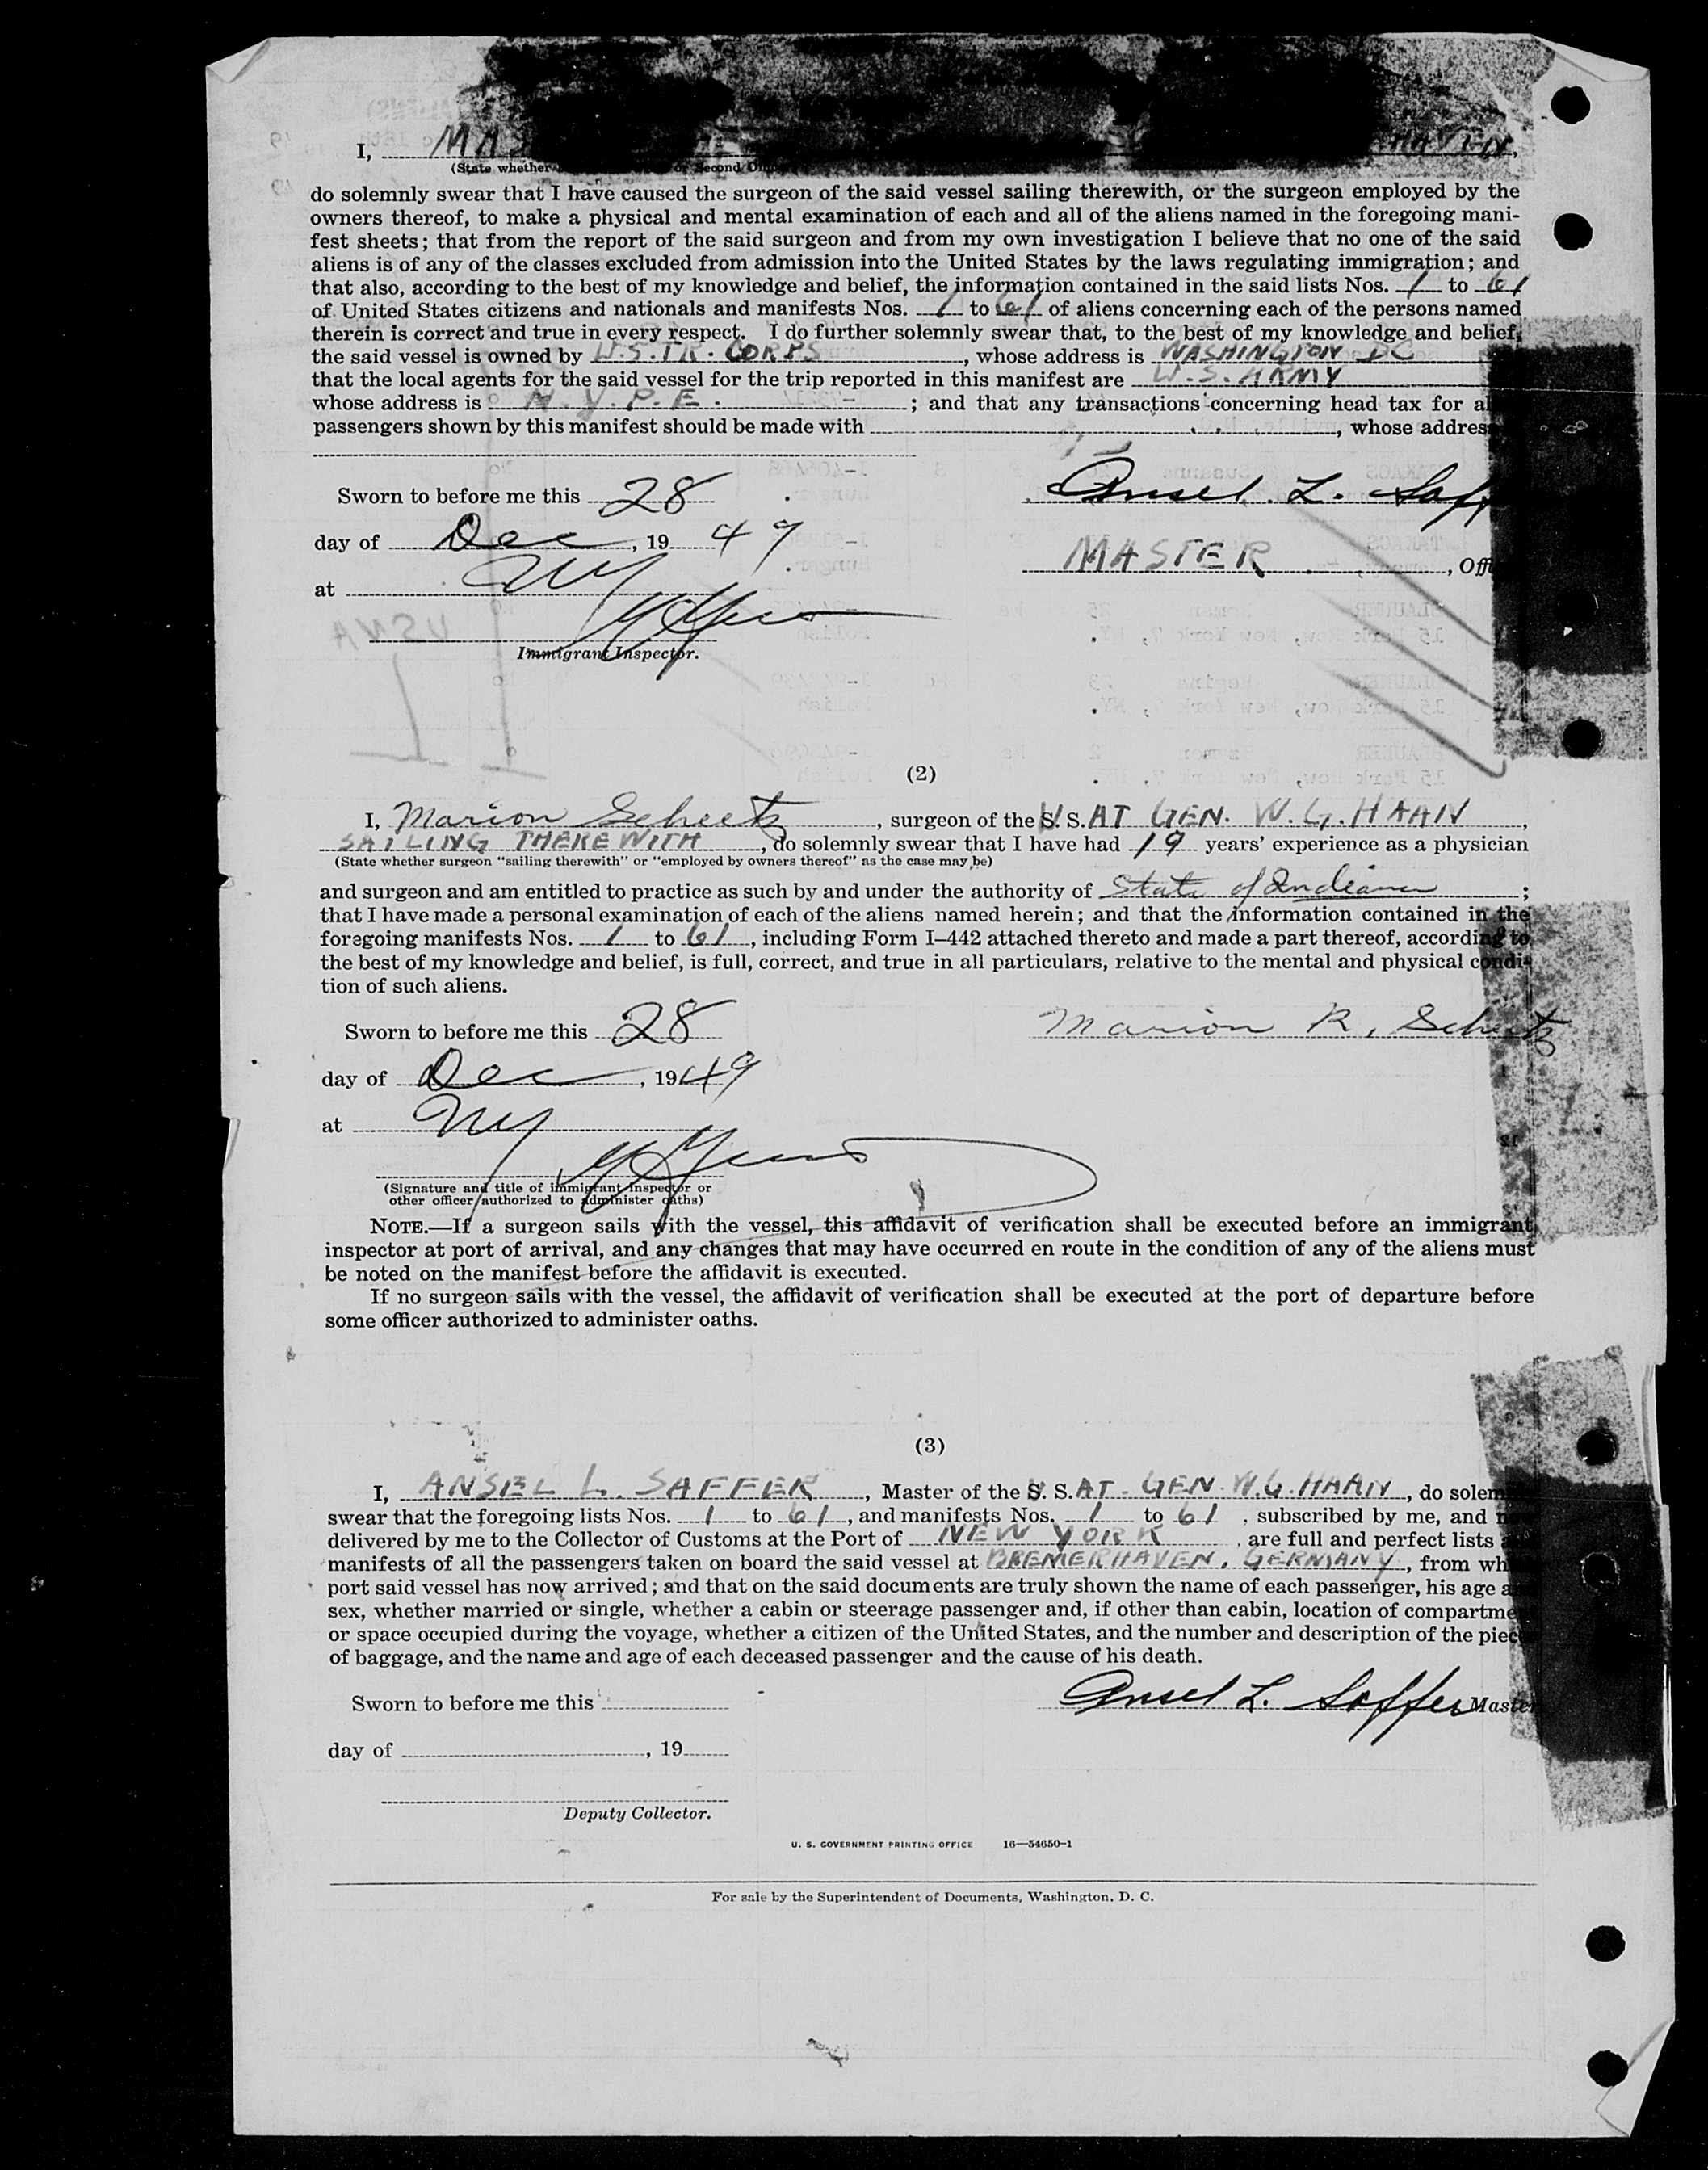 I, MA HAVEN,
(State whether or Second
do solemnly swear that I have caused the surgeon of the said vessel sailing therewith, or the surgeon employed by the
owners thereof, to make a physical and mental examination of each and all of the aliens named in the foregoing mani-
fest sheets; that from the report of the said surgeon and from my own investigation I believe that no one of the said
aliens is of any of the classes excluded from admission into the United States by the laws regulating immigration; and
that also, according to the best of my knowledge and belief, the information contained in the said lists Nos. 1 to 61
of United States citizens and nationals and manifests Nos. 1 to 61 of aliens concerning each of the persons named
therein is correct and true in every respect. I do further solemnly swear that, to the best of my knowledge and belief,
the said vessel is owned by U.S. TR. CORPS, whose address is WASHINGTON DC
that the local agents for the said vessel for the trip reported in this manifest are U.S. ARMY
whose address is N.Y.P.E. ; and that any transactions concerning head tax for al
passengers shown by this manifest should be made with , whose address
Sworn to before me this 28
Ansel L. Saff
day of Dec, 19 49
MASTER, Offi
at NY
Immigrant Inspector.
(2)
I, Marion Scheetz, surgeon of the U.S. AT GEN. W. G. HAAN,
SAILING THEREWITH, do solemnly swear that I have had 19 years' experience as a physician
(State whether surgeon "sailing therewith" or "employed by owners thereof" as the case may be)
and surgeon and am entitled to practice as such by and under the authority of State of Indiana;
that I have made a personal examination of each of the aliens named herein; and that the information contained in the
foregoing manifests Nos. 1 to 61, including Form I–442 attached thereto and made a part thereof, according to
the best of my knowledge and belief, is full, correct, and true in all particulars, relative to the mental and physical condi-
tion of such aliens.
Sworn to before me this 28
Marion R. Scheetz
day of Dec, 1949
at NY
(Signature and title of immigrant inspector or
other officer authorized to administer oaths)
NOTE.—If a surgeon sails with the vessel, this affidavit of verification shall be executed before an immigrant
inspector at port of arrival, and any changes that may have occurred en route in the condition of any of the aliens must
be noted on the manifest before the affidavit is executed.
If no surgeon sails with the vessel, the affidavit of verification shall be executed at the port of departure before
some officer authorized to administer oaths.
(3)
I, ANSEL L. SAFFER, Master of the U. S. AT - GEN. W.G. HAAN, do solem
swear that the foregoing lists Nos. 1 to 61, and manifests Nos. 1 to 61, subscribed by me, and
delivered by me to the Collector of Customs at the Port of NEW YORK, are full and perfect lists
manifests of all the passengers taken on board the said vessel at BREMERHAVEN, GERMANY, from wh
port said vessel has now arrived; and that on the said documents are truly shown the name of each passenger, his age a
sex, whether married or single, whether a cabin or steerage passenger and, if other than cabin, location of compartme
or space occupied during the voyage, whether a citizen of the United States, and the number and description of the piec
of baggage, and the name and age of each deceased passenger and the cause of his death.
Sworn to before me this
Ansel L. Saffer Master
day of , 19
Deputy Collector.
U. S. GOVERNMENT PRINTING OFFICE 16—54650-1
For sale by the Superintendent of Documents, Washington, D. C.